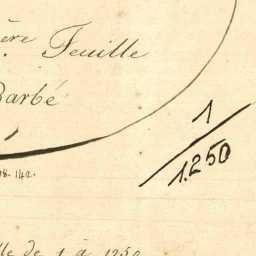 ère. Feuille
Barbé
1
1.250
18.142.
lle de 1 à 1250